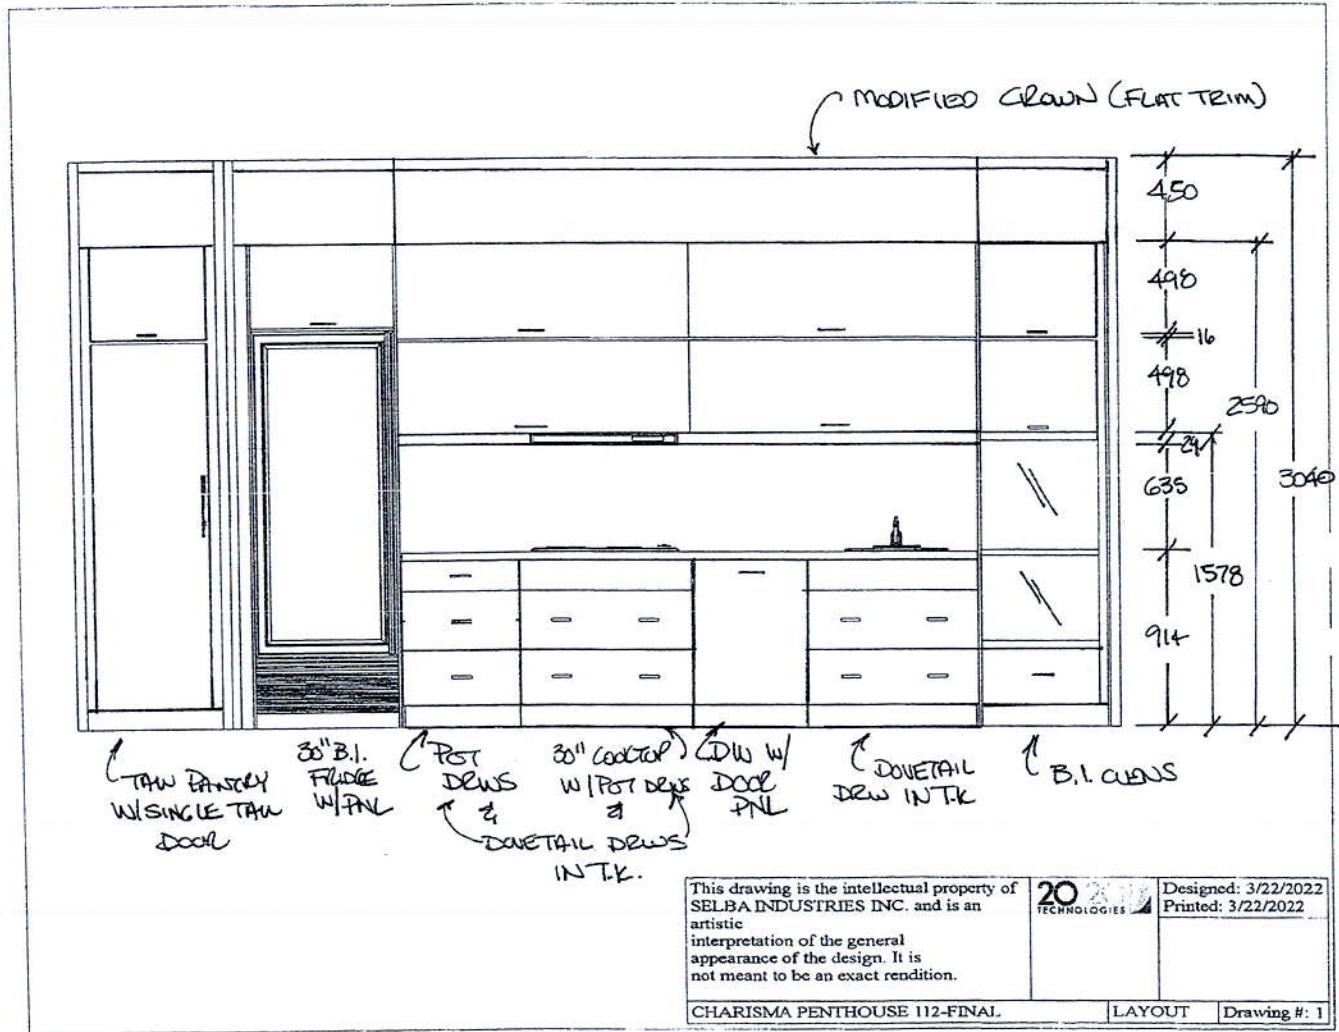 MODIFIED CROWN (FLAT TRIM)
450
498
16
498
2590
29
3040
635
1578
914
TALL PANTRY
W/SINGLE TALL
DOOR
30" B.I.
FRIDGE
W/PNL
POT
DRWS
&
30" COOKTOP
W/POT DRWS
&
DOVETAIL DRWS
IN T.K.
DW W/
DOOR
PNL
DOVETAIL
DRW IN T.K
B.I. OVENS
This drawing is the intellectual property of
SELBA INDUSTRIES INC. and is an
artistic
interpretation of the general
appearance of the design. It is
not meant to be an exact rendition.
20 20
TECHNOLOGIES
Designed: 3/22/2022
Printed: 3/22/2022
CHARISMA PENTHOUSE 112-FINAL
LAYOUT
Drawing #: 1